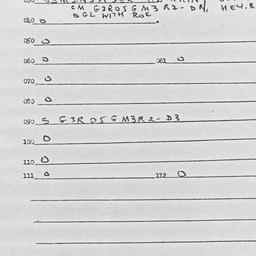 CM G3R05GM3R2-DN, HEX.R
DGL WITH ROE
040 O
050 O
060 O 061 O
070 O
080 O
090 S G3RD5GM3R2-D3
100 O
110 O
111 O 112 O